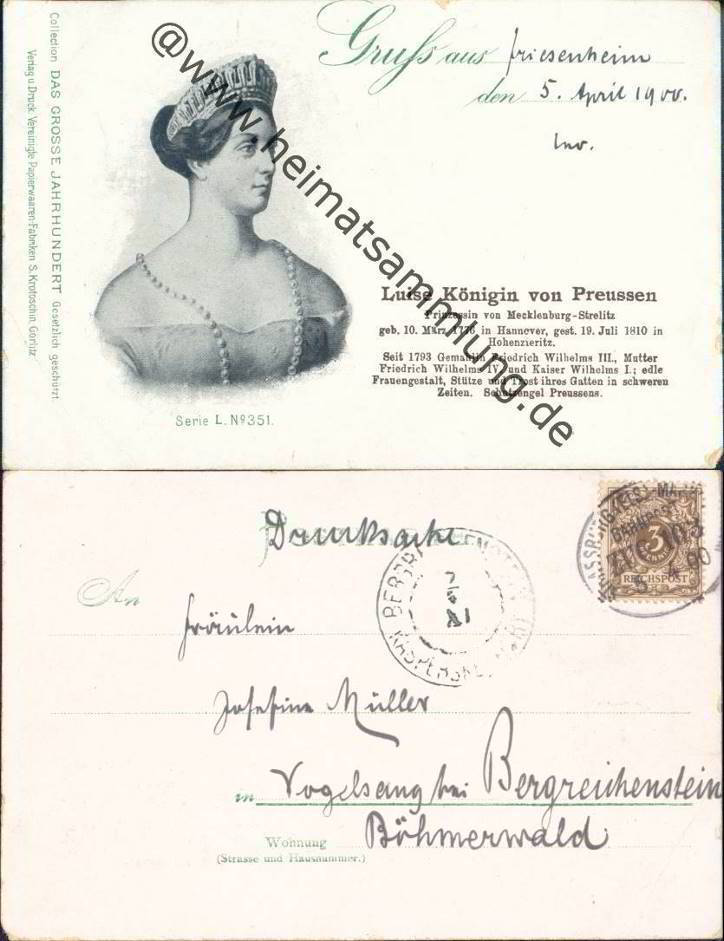 Gruss aus Friesenheim
den 5. April 1900.
Luise Königin von Preussen
Prinzessin von Mecklenburg-Strelitz
geb. 10. März 1776 in Hannover, gest. 19. Juli 1810 in
Hohenzieritz.
Seit 1793 Gemahlin Friedrich Wilhelms III., Mutter
Friedrich Wilhelms IV. und Kaiser Wilhelms I.; edle
Frauengestalt, Stütze und Trost ihres Gatten in schweren
Zeiten. Schutzengel Preussens.
Serie L. № 351.
Collection DAS GROSSE JAHRHUNDERT Gesetzlich geschützt
Verlag u Druck Vereinigte Papierwaaren-Fabriken S. Krotoschin Görlitz
@www.heimatsammlung.de
Drucksache
3
REICHSPOST
ZUG 103
5 4 00
An
Fräulein
Josefine Müller
in Vogelsang bei Bergreichenstein
Böhmerwald
Wohnung
(Strasse und Hausnummer.)